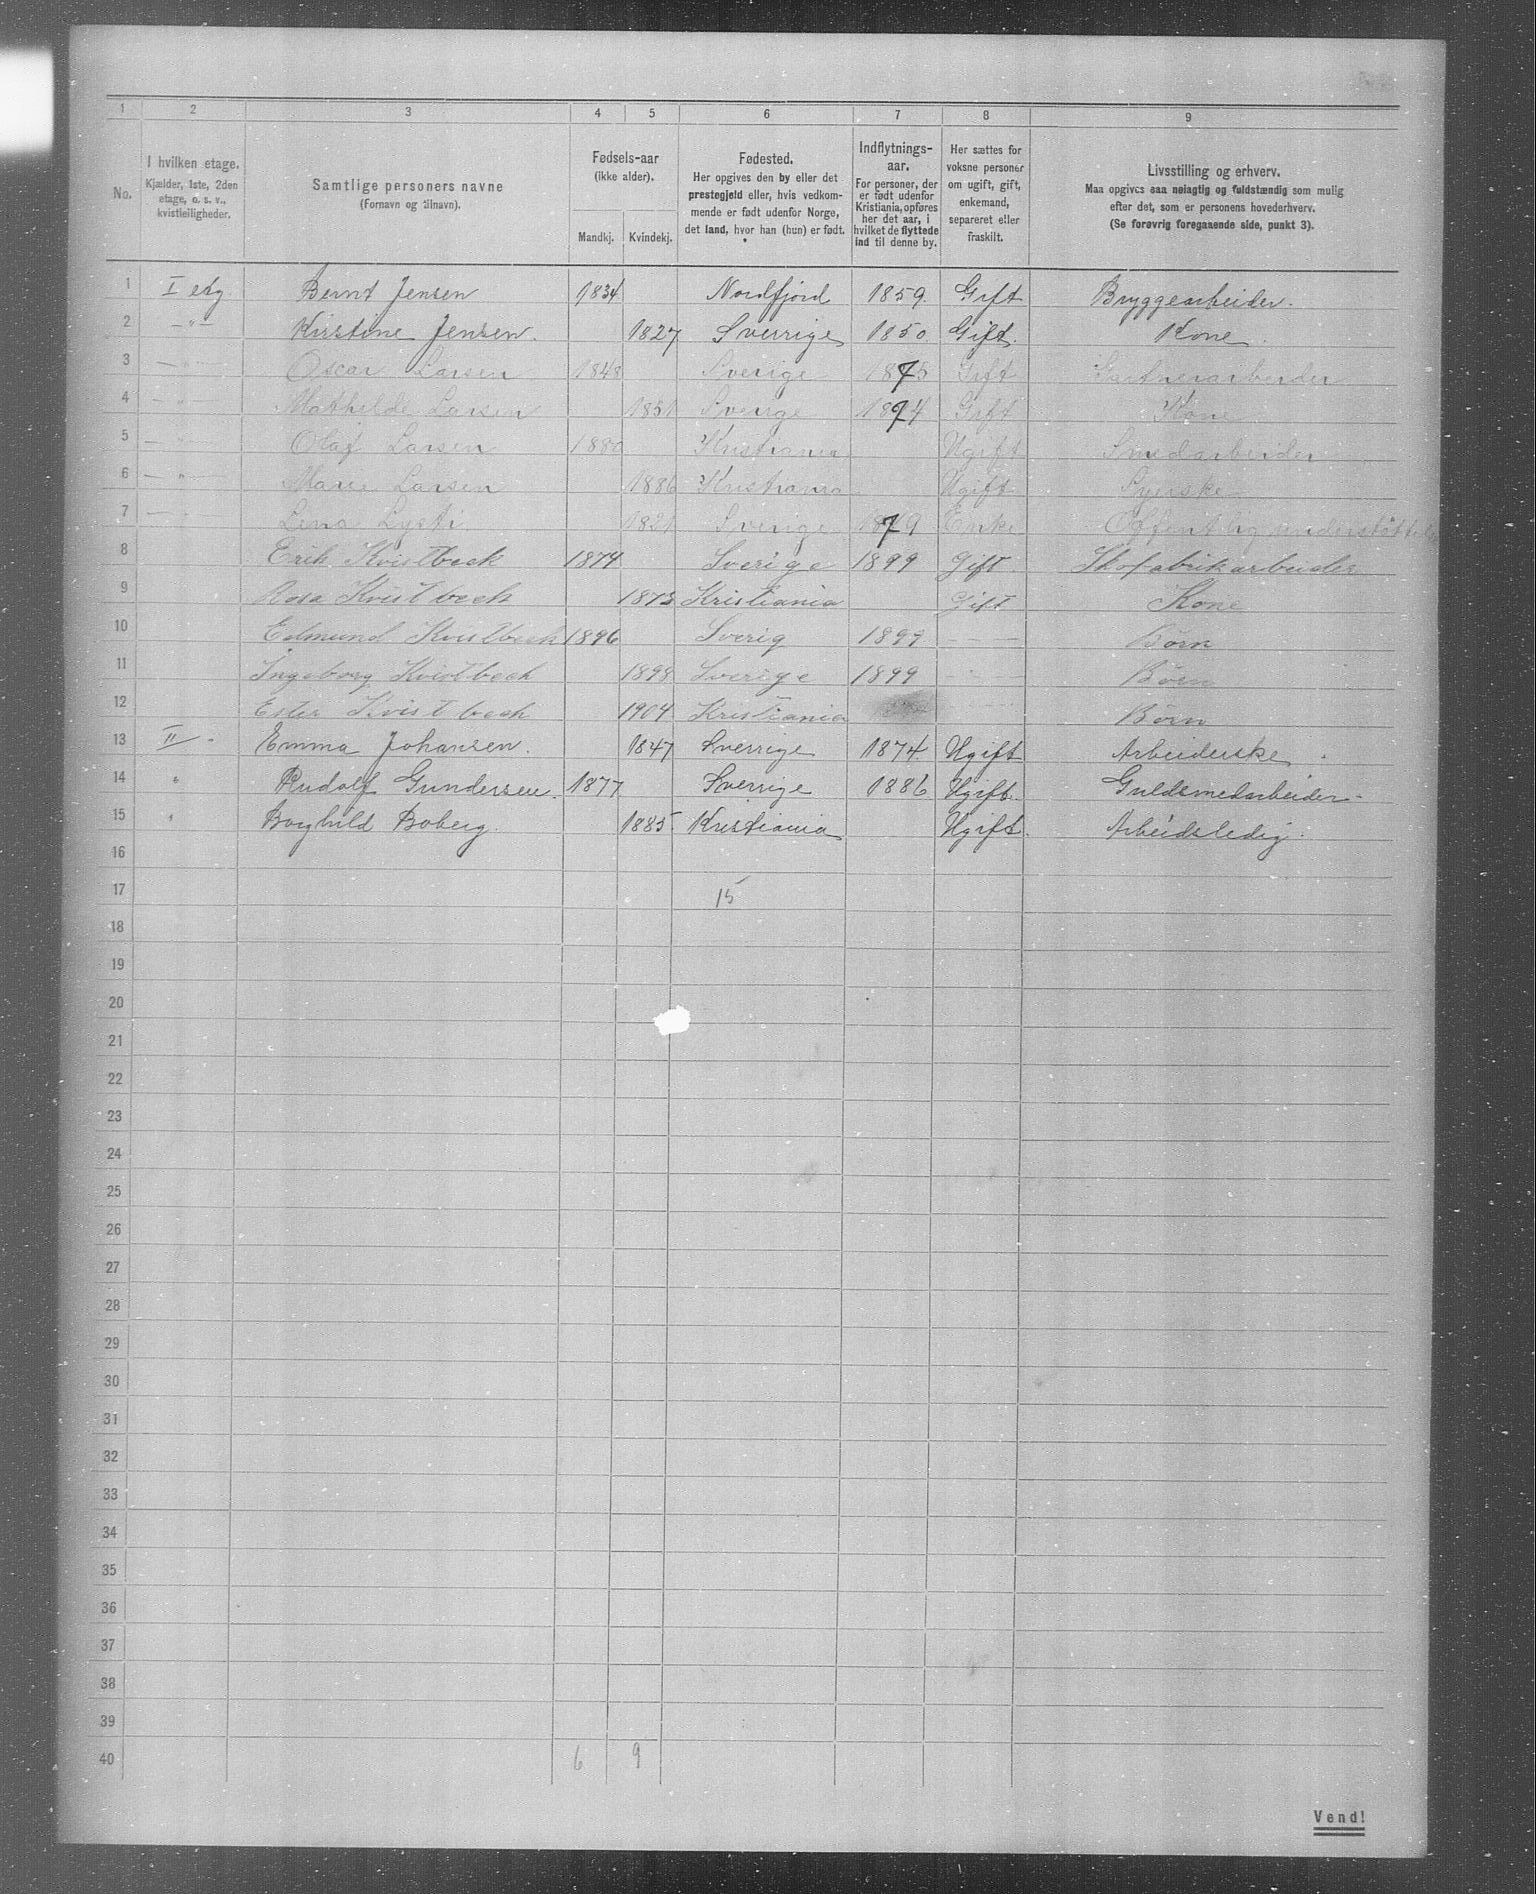 1 2 3 4 5 6 7 8 9
No.
I hvilken etage.
Kjælder, 1ste, 2den
etage, o. s. v.,
kvistleiligheder.
Samtlige personers navne
(Fornavn og tilnavn).
Fødsels-aar
(ikke alder).
Mandkj. Kvindekj.
Fødested.
Her opgives den by eller det
prestegjeld eller, hvis vedkom-
mende er født udenfor Norge,
det land, hvor han (hun) er født.
Indflytnings-
aar.
For personer, der
er født udenfor
Kristiania, opføres
her det aar, i
hvilket de flyttede
ind til denne by.
Her sættes for
voksne personer
om ugift, gift,
enkemand,
separeret eller
fraskilt.
Livsstilling og erhverv.
Maa opgives saa nøiagtig og fuldstændig som mulig
efter det, som er personens hovederhverv.
(Se forøvrig foregaaende side, punkt 3).
1 I etg Bernt Jensen 1834 Nordfjord 1859. Gift Bryggearbeider.
2 —"— Kirstine Jensen. 1827 Sverrige 1850. Gift. Kone.
3 —"— Oscar Larsen 1848 Sverige 1875 Gift Gartnerarbeider
4 —"— Mathilde Larsen 1851 Sverige 1874 Gift Kone
5 —"— Olaf Larsen 1880 Kristiania Ugift Smedarbeider
6 —"— Marie Larsen 1886 Kristiania Ugift Syerske
7 —"— Lena Lysti 1821 Sverige 1879 Enke Offentlig understøttelse
8 Erik Kvistbeck 1874 Sverige 1899 Gift Skofabrikarbeider
9 Rosa Kvistbeck 1873 Kristiania Gift Kone
10 Edmund Kvistbeck 1896 Sverig 1899 — Børn
11 Ingeborg Kvistbeck 1898 Sverige 1899 — Børn
12 Ester Kvistbeck 1904 Kristiania Børn
13 II - Emma Johansen. 1847 Sverrige 1874. Ugift Arbeiderske
14 " Rudolf Gundersen. 1877 Sverrige 1886 Ugift. Guldsmedarbeider
15 " Borghild Boberg. 1885 Kristiania Ugift. Arbeidsledig.
16
17 15
18
19
20
21
22
23
24
25
26
27
28
29
30
31
32
33
34
35
36
37
38
39
40 6 9
Vend!